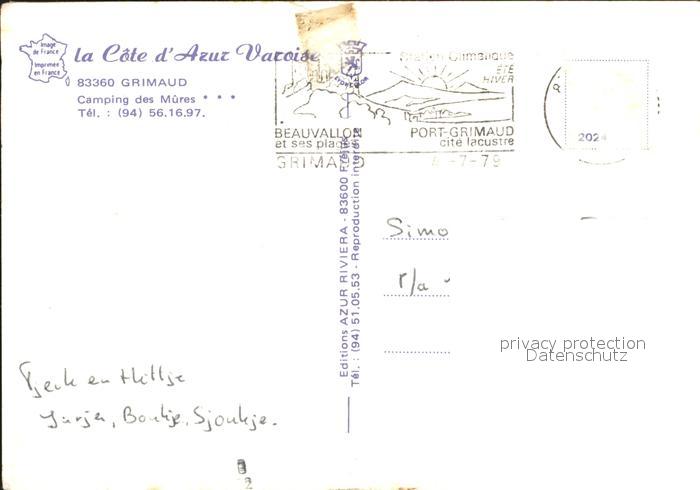 Image
de France
Imprimée
en France
la Côte d'Azur Varoise
83360 GRIMAUD
Camping des Mûres * * *
Tél. : (94) 56.16.97.
Station Climatique
ÉTÉ
HIVER
BEAUVALLON
et ses plages
PORT-GRIMAUD
cité lacustre
GRIMAUD
-7-79
2024
Editions AZUR RIVIERA - 83600 Fréjus
Tél. : (94) 51.05.53 - Reproduction interdite
Simo
r/a
privacy protection
Datenschutz
Tjeck en Hiltje
Jurjen, Boukje, Sjoukje.
2